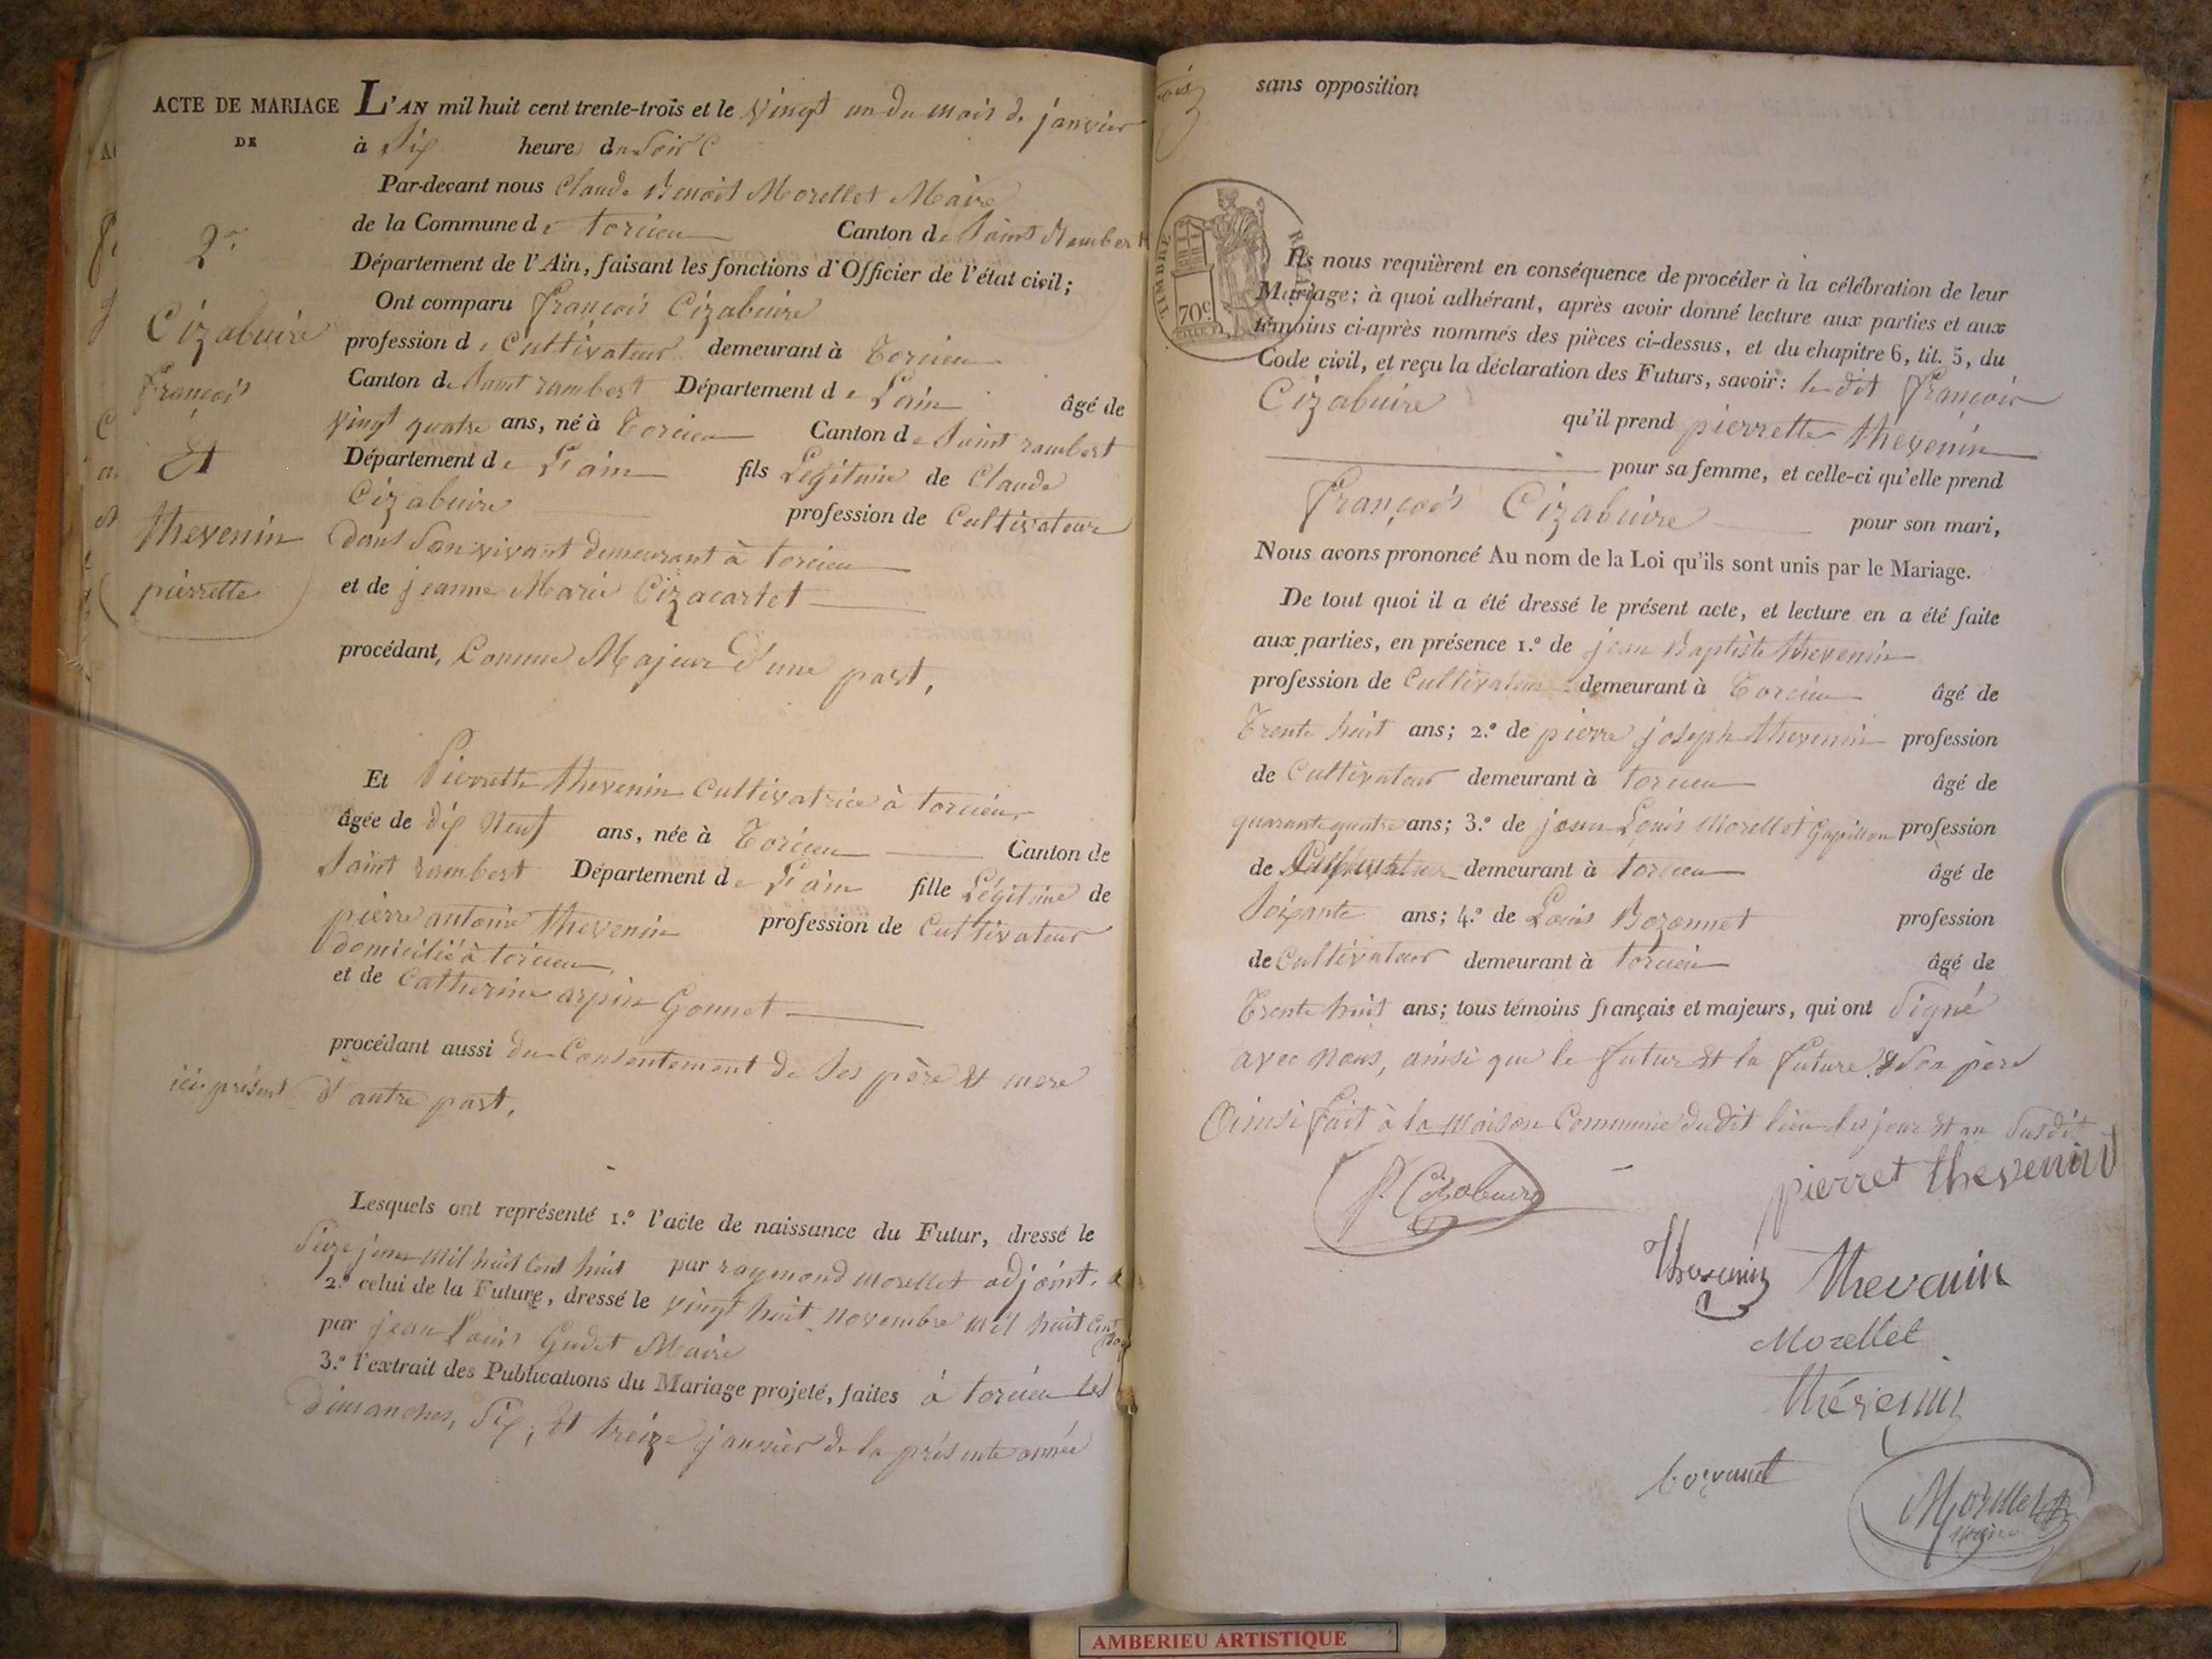 ACTE DE MARIAGE
DE
2e
Cizabuire
François
Et
thevenin
pierrette
L'AN mil huit cent trente-trois et le vingt un du mois de janvier
à Six heures du Soir
Par-devant nous Claude Benoit Morellet Maire
de la Commune de torcieu Canton de Saint Rambert
Département de l'Ain, faisant les fonctions d'Officier de l'état civil;
Ont comparu François Cizabuire
profession de Cultivateur demeurant à Torcieu
Canton de Saint rambert Département de L'ain âgé de
vingt quatre ans, né à Torcieu Canton de Saint rambert
Département de L'ain fils Legitime de Claude
Cizabuire profession de Cultivateur
dans Son vivant demeurant à torcieu
et de jeanne Marie Cizacartet
procédant, Comme Majeur d'une part,
Et Pierrette thevenin Cultivatrice à torcieu,
âgée de dix Neuf ans, née à Torcieu Canton de
Saint rambert Département de L'ain fille Légitime de
pierre antoine thevenin profession de Cultivateur
domicilié à torcieu,
et de Catherine arpin Gonnet
procédant aussi du Consentement de Ses père et mere
ici présent d'autre part,
Lesquels ont représenté 1.º l'acte de naissance du Futur, dressé le
Seize juin mil huit Cent huit par raymond morellet adjoint,
2.º celui de la Future, dressé le vingt huit novembre mil huit Cent
par jean Louis Gudet Maire
3.º l'extrait des Publications du Mariage projeté, faites à torcieu les
dimanches, Six, et treize janvier de la présente année
sans opposition
TIMBRE ROYAL
70c
Ils nous requièrent en conséquence de procéder à la célébration de leur
Mariage; à quoi adhérant, après avoir donné lecture aux parties et aux
témoins ci-après nommés des pièces ci-dessus, et du chapitre 6, tit. 5, du
Code civil, et reçu la déclaration des Futurs, savoir: le dit François
Cizabuire qu'il prend pierrette thevenin
pour sa femme, et celle-ci qu'elle prend
François Cizabuire pour son mari,
Nous avons prononcé Au nom de la Loi qu'ils sont unis par le Mariage.
De tout quoi il a été dressé le présent acte, et lecture en a été faite
aux parties, en présence 1.º de jean Baptiste thevenin
profession de Cultivateur demeurant à Torcieu âgé de
Trente huit ans; 2.º de pierre joseph thevenin profession
de Cultivateur demeurant à torcieu âgé de
quarante quatre ans; 3.º de jean Louis Morellet profession
de demeurant à torcieu âgé de
Soixante ans; 4.º de Louis Bozonnet profession
de Cultivateur demeurant à torcieu âgé de
Trente huit ans; tous témoins français et majeurs, qui ont Signé
avec Nous, ainsi que le futur et la future & Son père
Ainsi fait à la Maison Commune dudit lieu les jour et an Susdit
f. Cizabuire
pierret thevenin
thevenin thevenin
Morellet
thévenin
bozonnet
Morellet
maire
AMBERIEU ARTISTIQUE